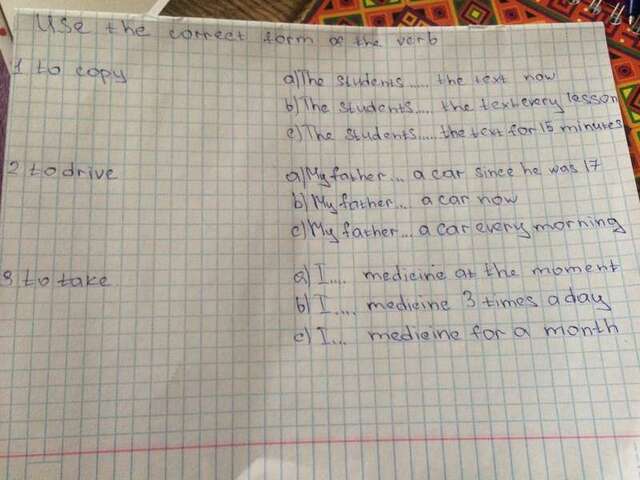 Use the correct form of the verb
1 to copy
a) The students ...... the text now
b) The students .... the text every lesson
c) The students .... the text for 15 minutes
2 to drive
a) My father ... a car since he was 17
b) My father ... a car now
c) My father ... a car every morning
3 to take
a) I .... medicine at the moment
b) I ..... medicine 3 times a day
c) I .... medicine for a month